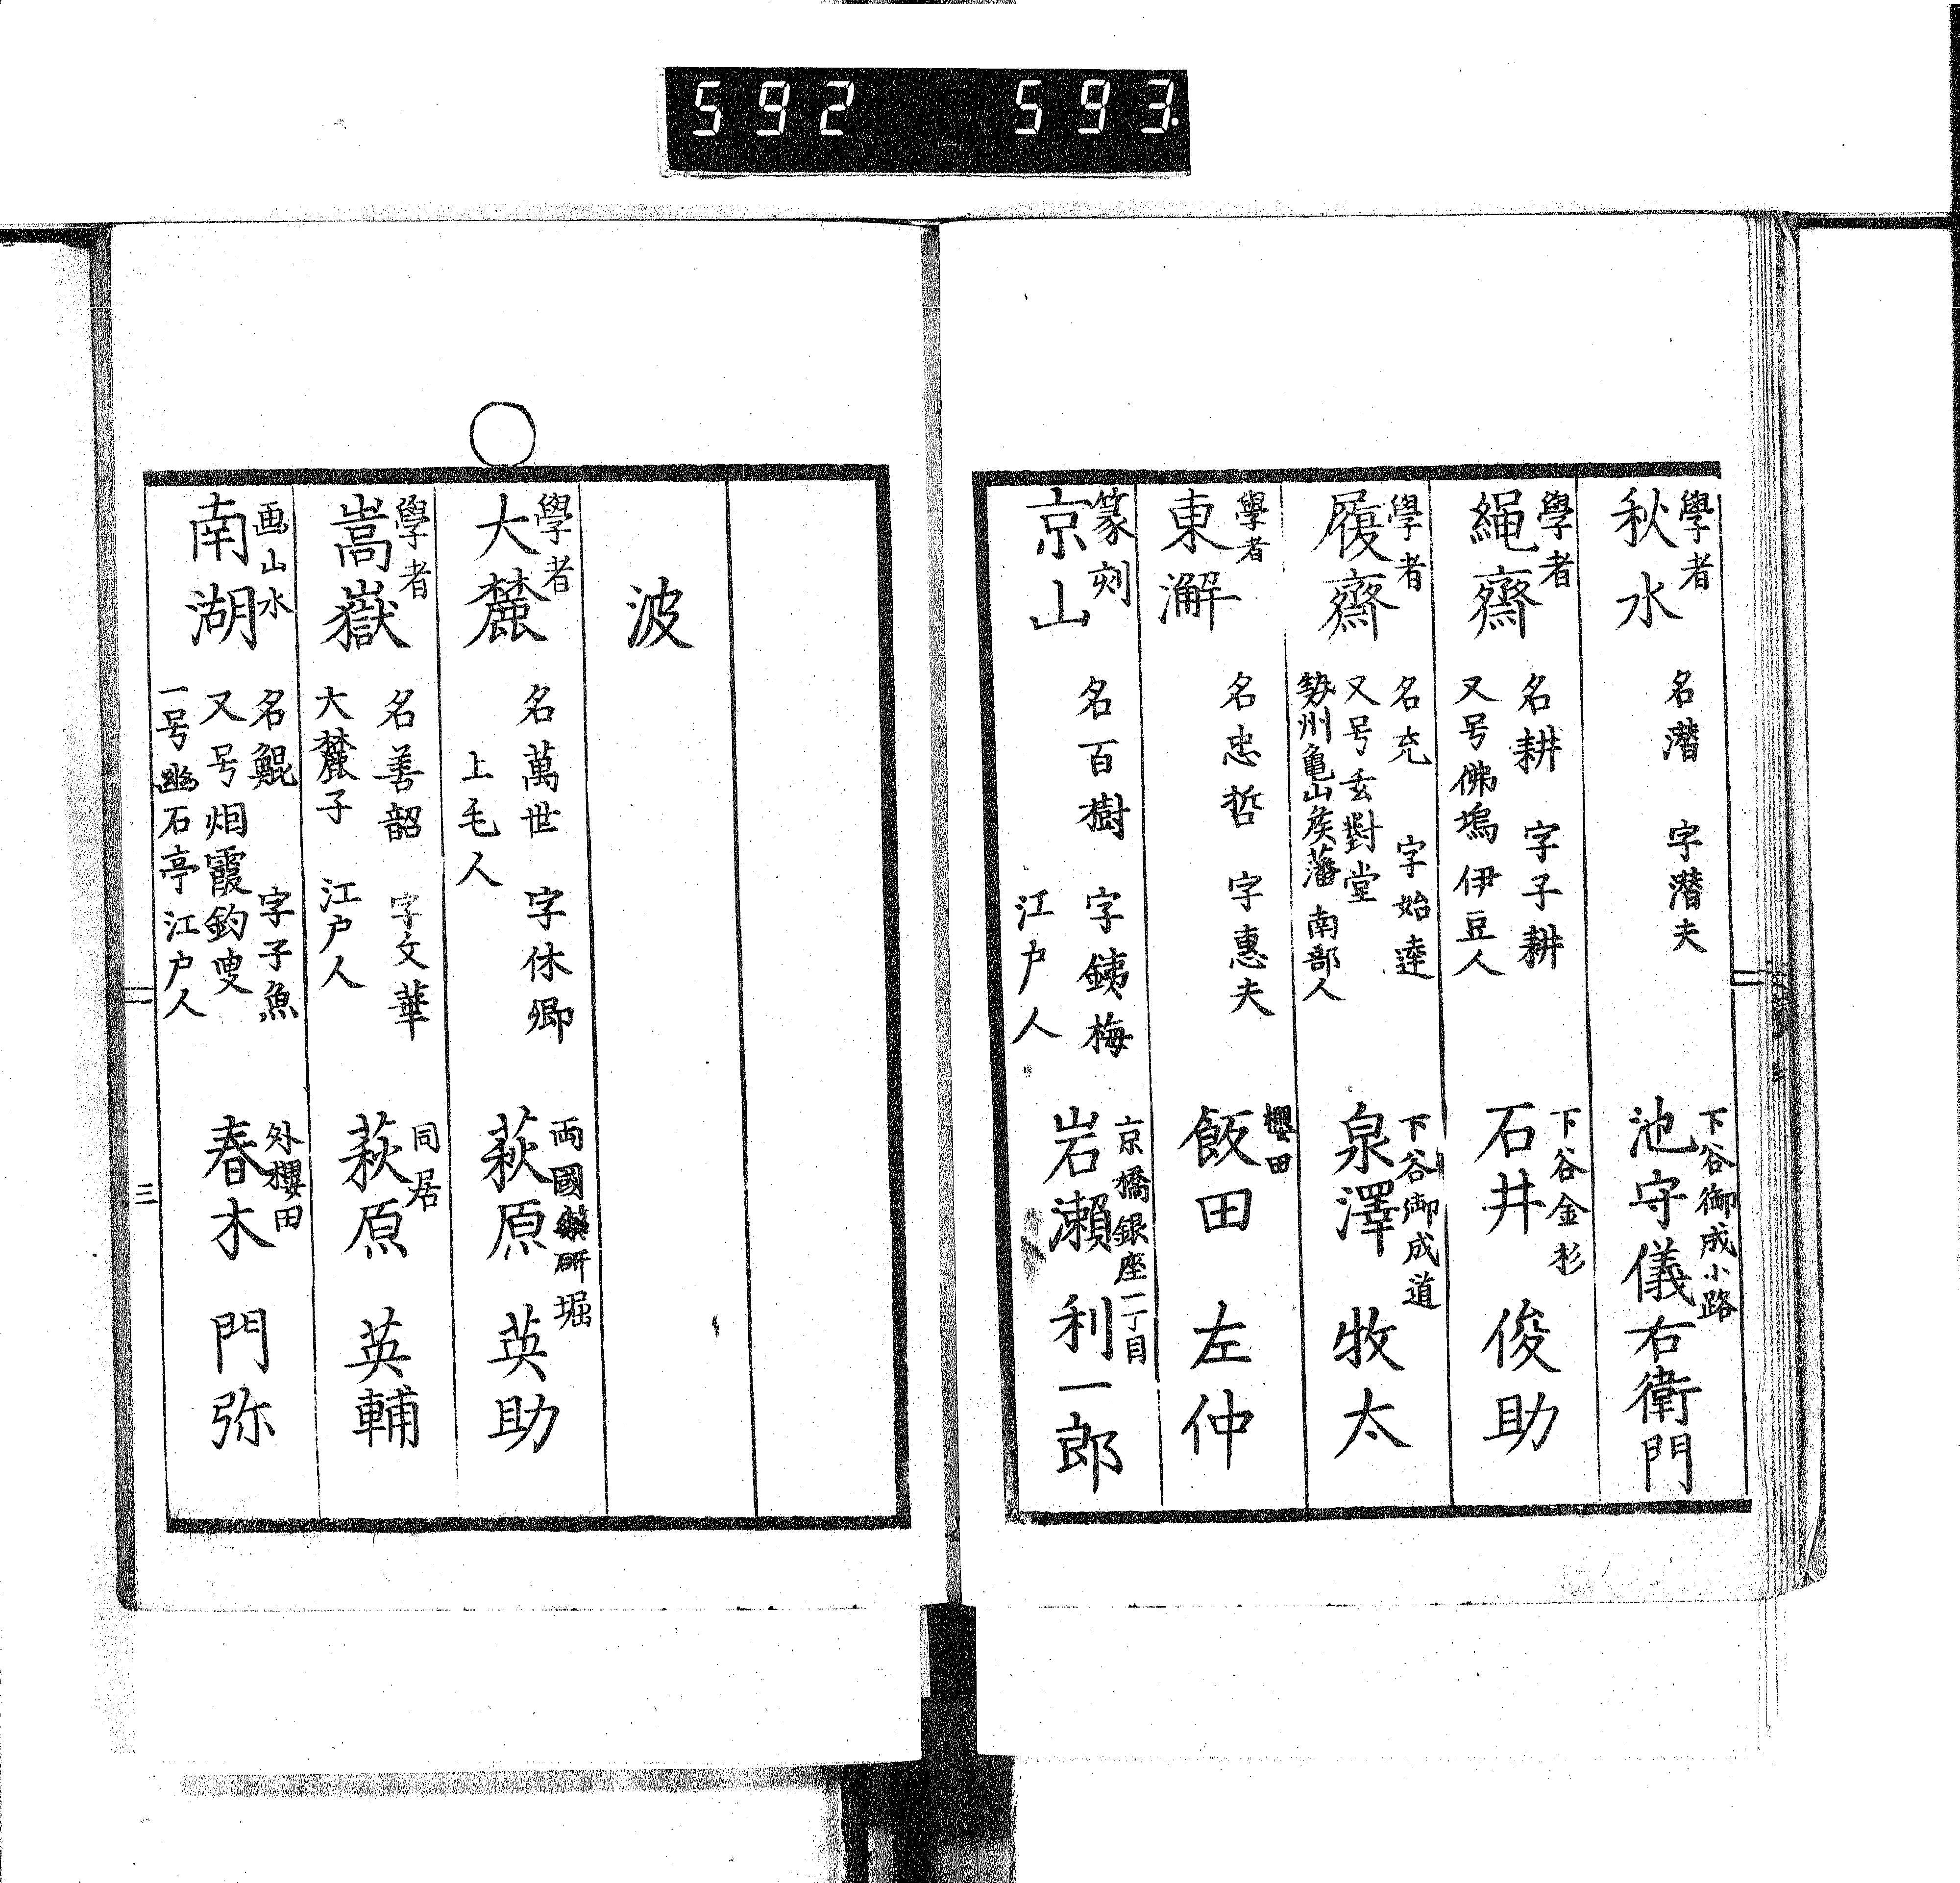 592 593
學者
秋水
名潜 字潜夫
下谷御成小路
池守儀右衛門
學者
繩齋
名耕 字子耕
又号佛塢 伊豆人
下谷金杉
石井 俊助
學者
履齋
名充 字始達
又号玄對堂
勢州亀山矦藩 南部人
下谷御成道
泉澤 牧太
學者
東澥
名忠哲 字惠夫
櫻田
飯田 左仲
篆刻
京山
名百樹 字銕梅
江戸人
京橋銀座一丁目
岩瀬利一郎
波
學者
大麓
名萬世 字休卿
上毛人
両國薬研堀
萩原 英助
學者
嵩嶽
名善韶 字文華
大麓子 江戸人
同居
萩原 英輔
画山水
南湖
名鯤 字子魚
又号烟霞釣叟
一号幽石亭 江戸人
外櫻田
春木 門弥
三